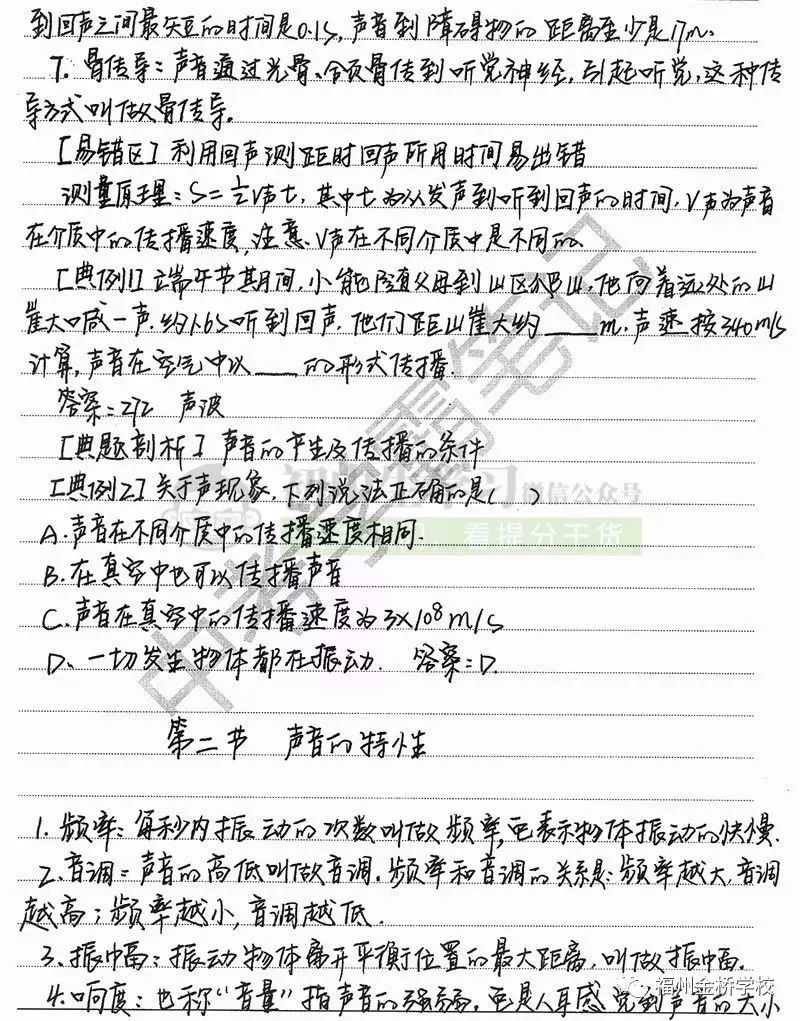 到回声之间最短的时间是0.1s,声音到障碍物的距离至少是17m.
7. 骨传导:声音通过头骨、颌骨传到听觉神经,引起听觉,这种传
导方式叫做骨传导.
[易错区] 利用回声测距时回声所用时间易出错
测量原理:S=½V声t,其中t为从发声到听到回声的时间,V声为声音
在介质中的传播速度,注意.V声在不同介质中是不同的.
[典例1] 端午节其期间,小能随父母到山区爬山,他向着远处的山
崖大喊一声.约1.6s听到回声.他们距山崖大约____m.声速按340m/s
计算,声音在空气中以____的形式传播.
答案:272 声波
[典题剖析] 声音的产生及传播的条件
[典例2] 关于声现象,下列说法正确的是( )
微信公众号
A.声音在不同介质中的传播速度相同.
看提分干货
B.在真空中也可以传播声音
C.声音在真空中的传播速度为3×10⁸m/s
D.一切发生物体都在振动. 答案:D.
中考学霸笔记
第二节 声音的特性
1.频率:每秒内振动的次数叫做频率,它表示物体振动的快慢.
2.音调:声音的高低叫做音调.频率和音调的关系是:频率越大,音调
越高;频率越小,音调越低.
3.振幅:振动物体离开平衡位置的最大距离,叫做振幅.
4.响度:也称“音量”指声音的强弱,它是人耳感觉到声音的大小
福州金桥学校